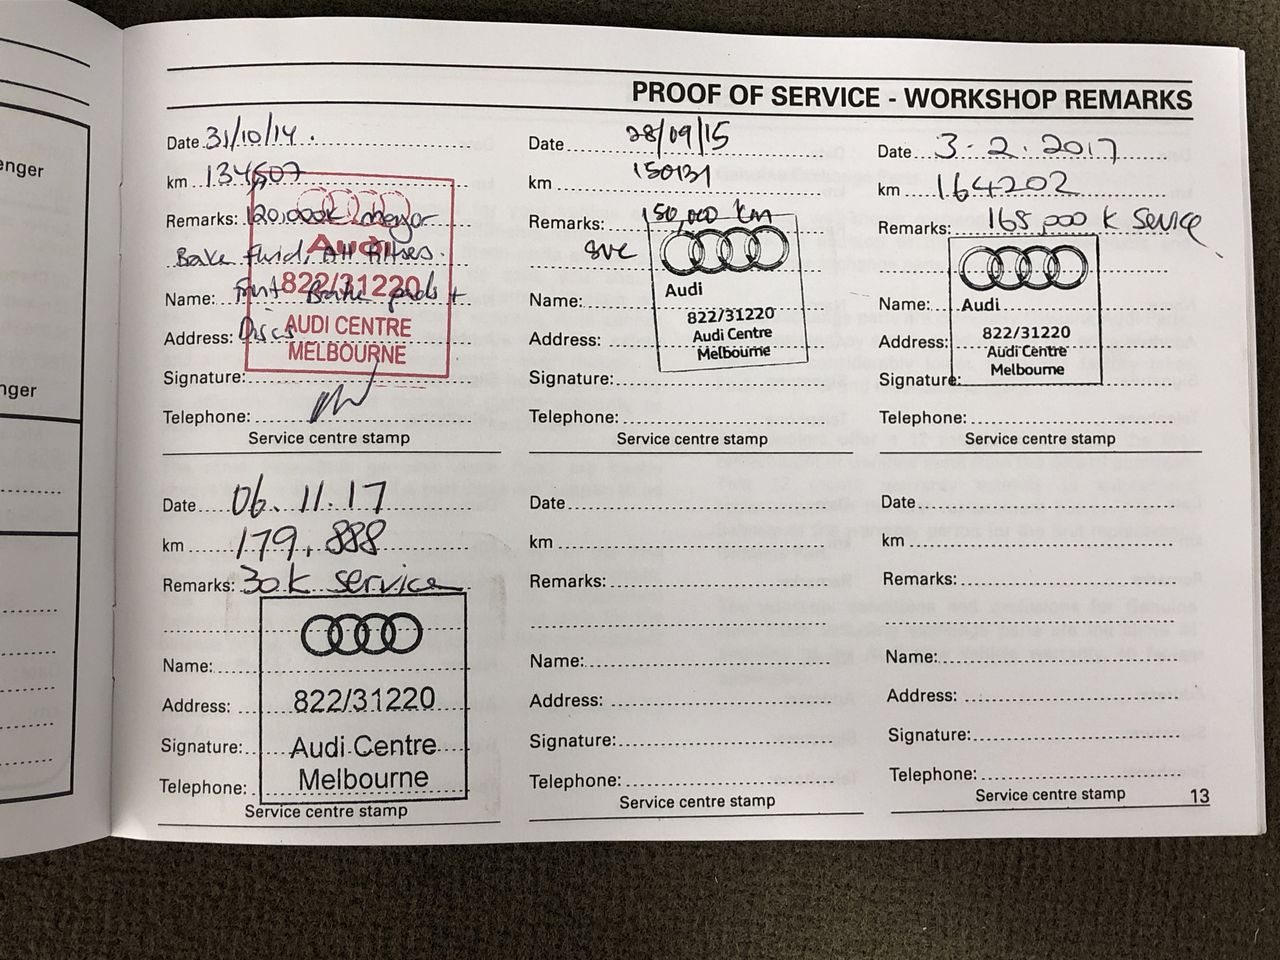 enger
nger
PROOF OF SERVICE - WORKSHOP REMARKS
Date 31/10/14.
km 134507
Remarks: 120,000k meyor
Bake fluid, All filters.
Name: Frnt Bake pads +
Address: Discs
Signature:
Telephone:
Audi
822/31220
AUDI CENTRE
MELBOURNE
Service centre stamp
Date 28/09/15
km 150131
Remarks: 150,000 km
svc
Name:
Address:
Signature:
Telephone:
Audi
822/31220
Audi Centre
Melbourne
Service centre stamp
Date 3.2.2017
km 164202
Remarks: 165,000 k Service
Name:
Address:
Signature:
Telephone:
Audi
822/31220
Audi Centre
Melbourne
Service centre stamp
Date 06.11.17
km 179,888
Remarks: 30k service
Name:
Address:
Signature:
Telephone:
822/31220
Audi Centre
Melbourne
Service centre stamp
Date
km
Remarks:
Name:
Address:
Signature:
Telephone:
Service centre stamp
Date
km
Remarks:
Name:
Address:
Signature:
Telephone:
Service centre stamp
13